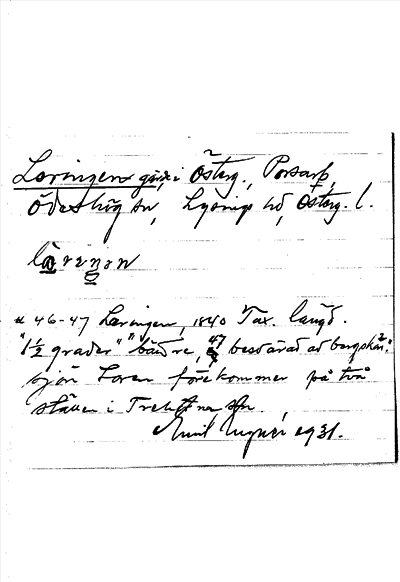 Loringen gård i Österg., Porsarp,
Ödeshög sn, Lysings hd, Österg. l.
# 46-47 Loringen, 1840 Tax. längd.
"1½ grader" "bättre, 47 besvärad av bergskär."
sjön Loren förekommer på två
ställen i Trehörna sn.
Emil 1931.